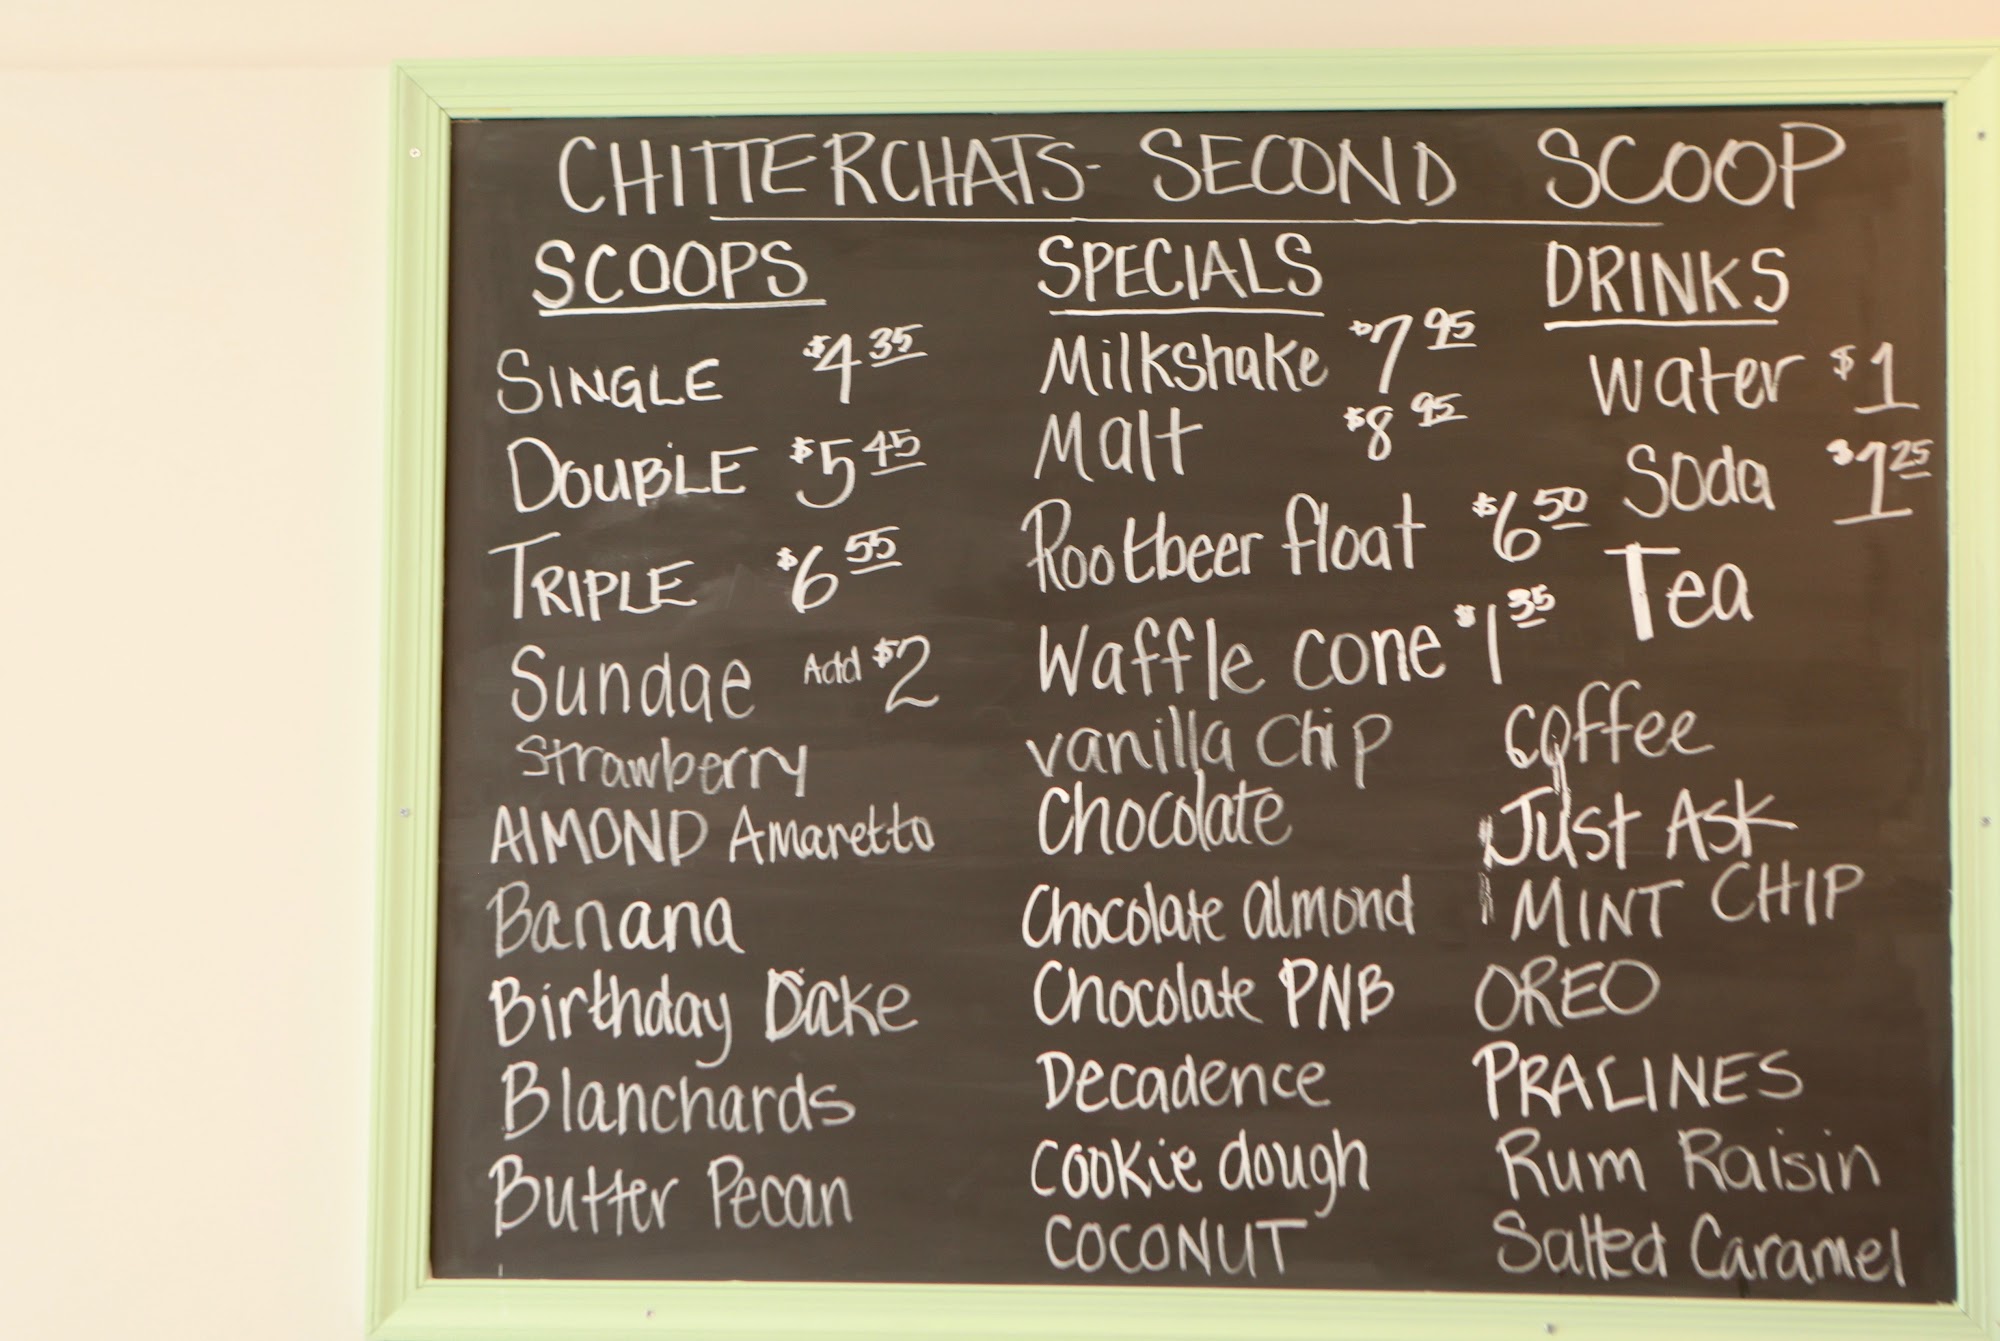 CHITTERCHATS- SECOND SCOOP
SCOOPS
SINGLE $4 35
DOUBLE $5 45
TRIPLE $6 55
Sundae Add $2
Strawberry
AlMOND Amaretto
Banana
Birthday Cake
Blanchards
Butter Pecan
SPECIALS
Milkshake $7 95
Malt $8 95
Rootbeer float $6 50
Waffle cone $1 35
vanilla Chip
Chocolate
Chocolate almond
Chocolate PNB
Decadence
Cookie dough
COCONUT
DRINKS
Water $1
Soda $1 25
Tea
Coffee
Just Ask
MINT CHIP
OREO
PRALINES
Rum Raisin
Salted Caramel